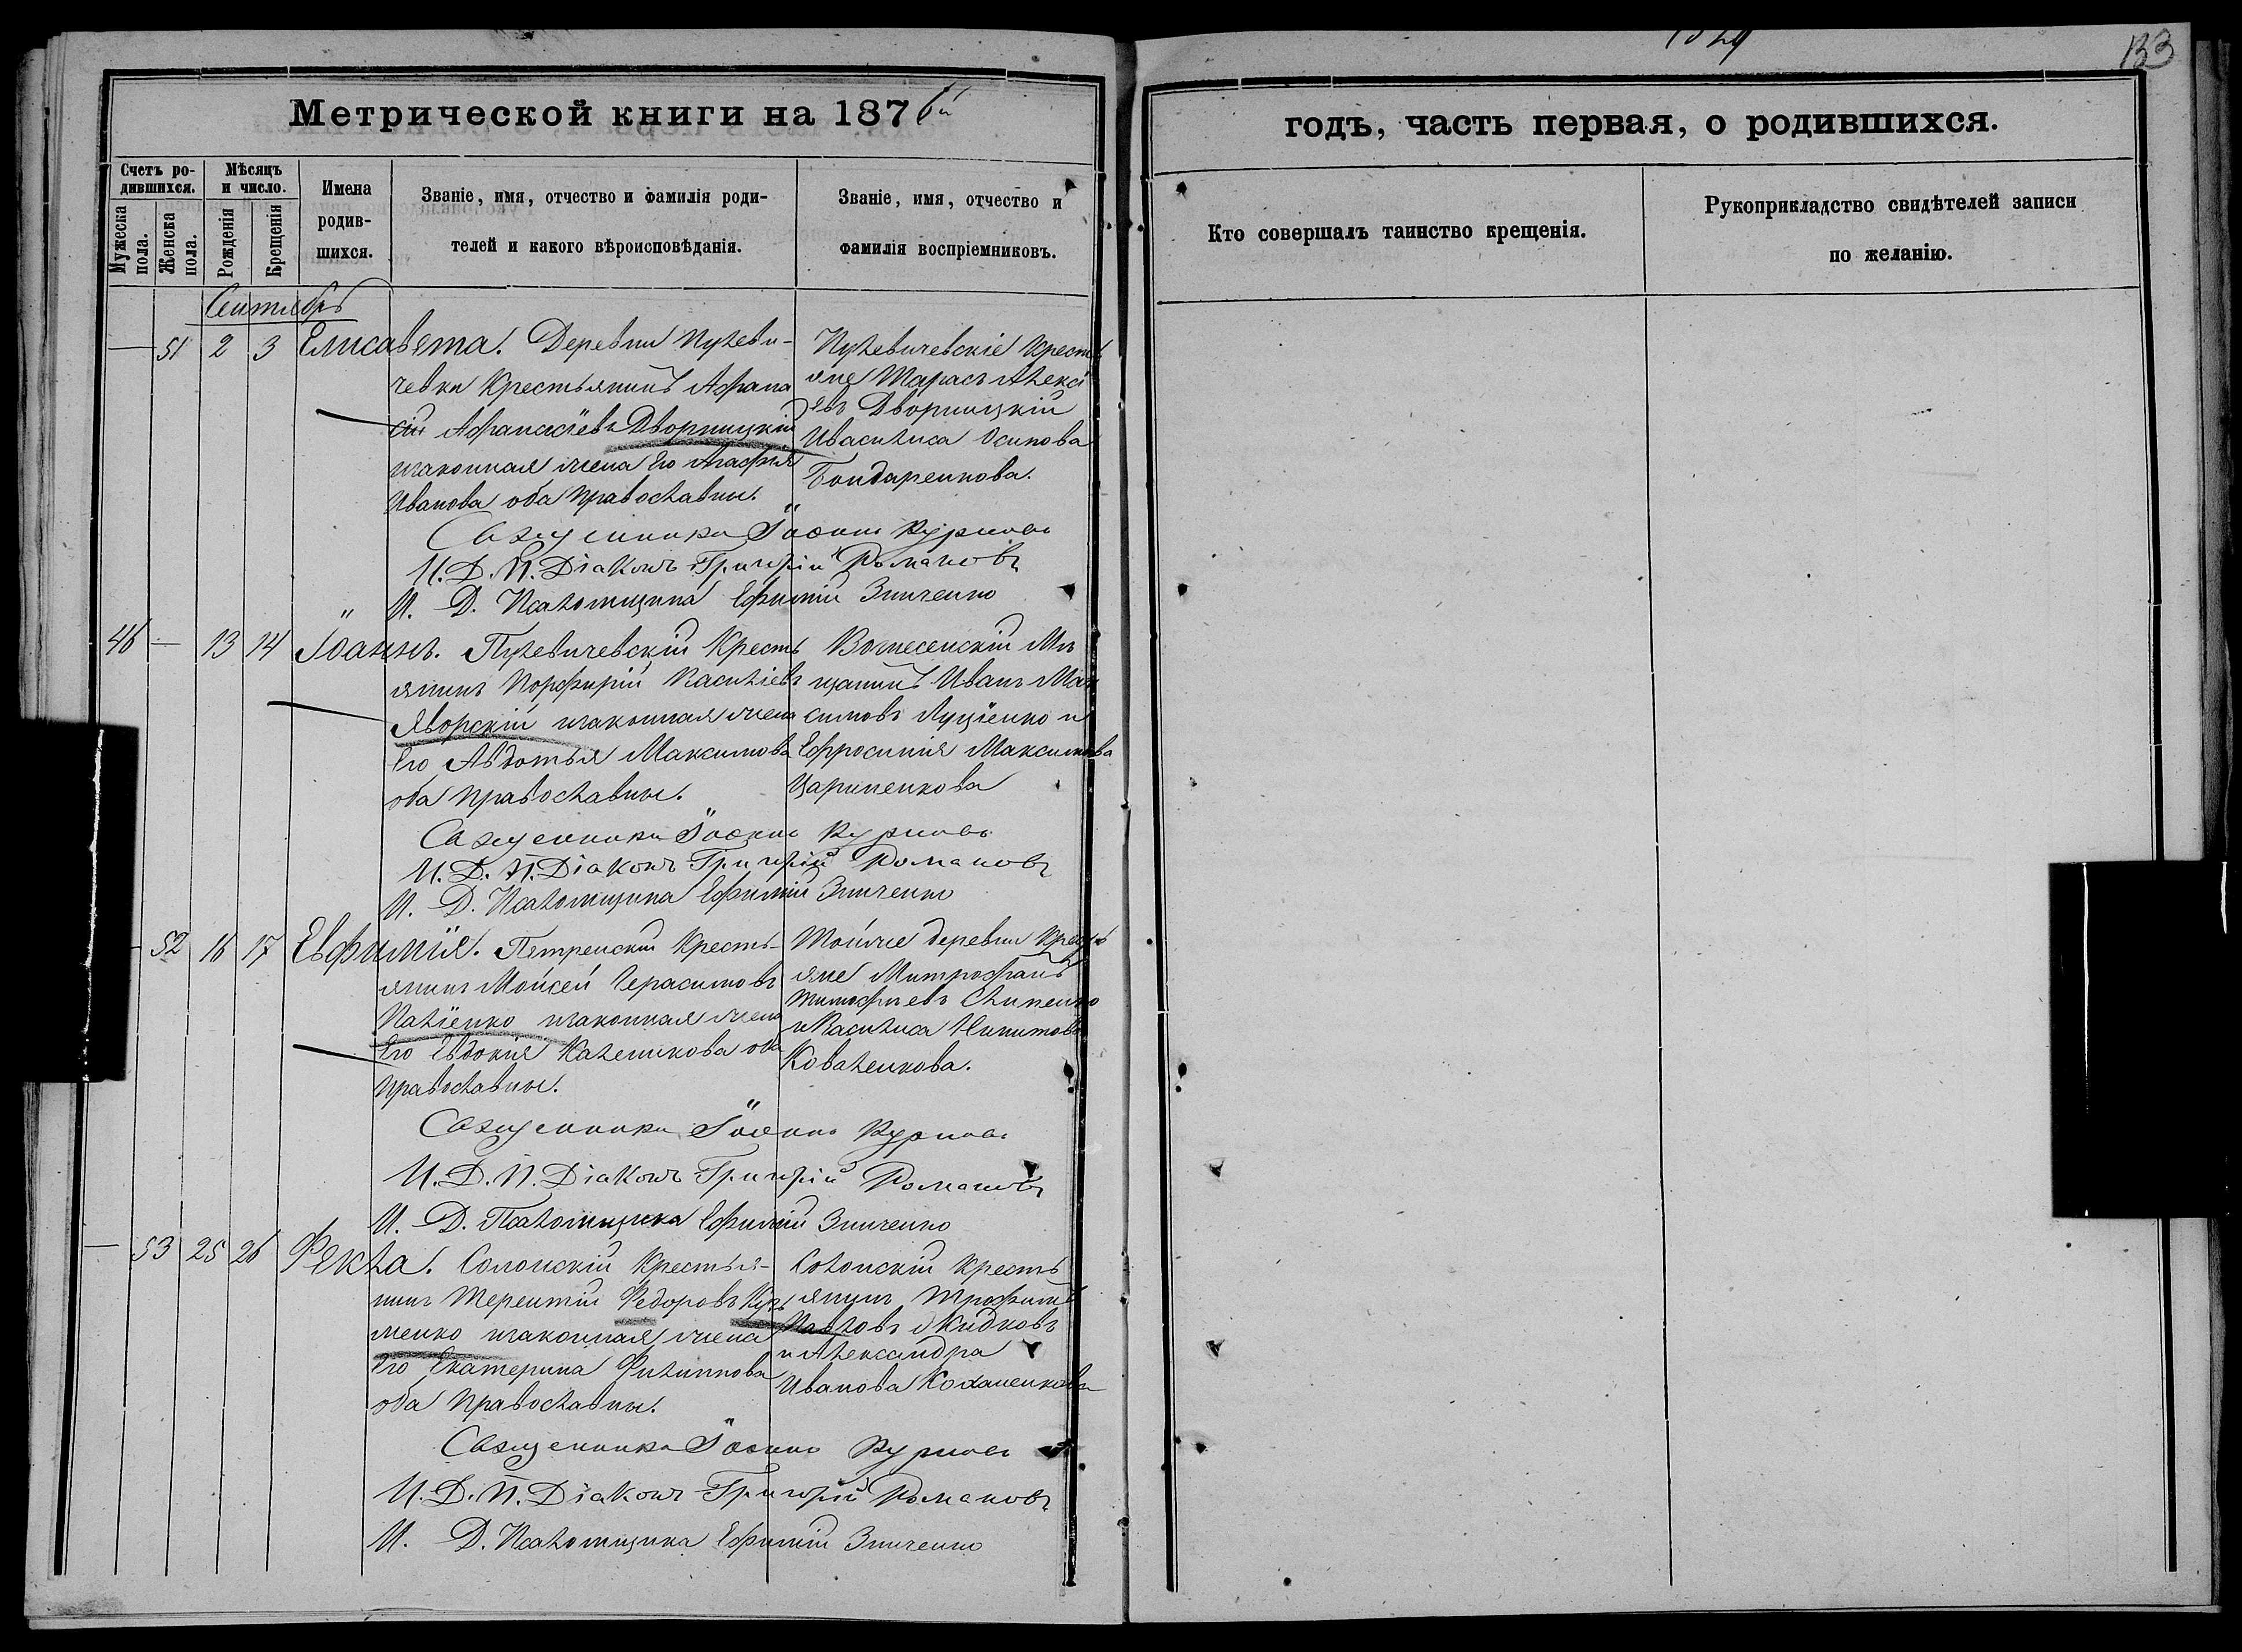 133
Метрической книги на 1876й
годъ, часть первая, о родившихся.
Счетъ ро-
дившихся.
Мѣсяцъ
и число.
Мужеска
пола.
Женска
пола.
Рожденія
Крещенія
Имена
родив-
шихся.
Званіе, имя, отчество и фамилія роди-
телей и какого вѣроисповѣданія.
Званіе, имя, отчество и
фамилія воспріемниковъ.
Кто совершалъ таинство крещенія.
Рукоприкладство свидѣтелей записи
по желанію.
Сентябрь
— 51 2 3 Елисавета.
Деревни
чевки Крестьянинъ Афана
сій Афанасіевъ Дворницкій
изаконная жена Его Агафія
Иванова оба православны.
Крестъ
яне Тарасъ Алексі
евъ Дворницкій
Ивасилиса Осипова
Бондаренкова.
Священникъ Іоаннъ
И. Д. П. Діаконъ Григорій Романовъ
И. Д. Псаломщика Ефимій Зинченко
46 — 13 14 Іоаннъ.
Кресть
янинъ Порфирій Василіевъ
Яворскій изаконная жена
Его Авдотья Максимова
оба православны.
Вознесенскій Мѣ
щанинъ Иванъ Мак
симовъ Луціенко и
Ефросинія Максимова
Цариненкова
Священникъ Іоаннъ
И. Д. П. Діаконъ Григорій Романовъ
И. Д. Псаломщика Ефимій Зинченко
— 52 16 17 Евфимія.
Петренскій Кресть-
янинъ Мойсей Герасимовъ
Паліенко изаконная жена
Его Евдокія Каленикова оба
православны.
Тойже деревни Кресть
яне Митрофанъ
Тимофѣевъ
иВасилиса Никитова
Коваленкова.
Священникъ Іоаннъ
И. Д. П. Діаконъ Григорій Романовъ
И. Д. Псаломщика Ефимій Зинченко
— 53 25 26 Фекла.
Солонскій Крестья-
нинъ Терентій Федоровъ Кузь
менко изаконная жена
Его Екатерина Филиппова
оба православны.
Солонскій Кресть
янинъ Трофимъ
Павловъ Жидковъ
и Александра
Иванова Коханенкова
Священникъ Іоаннъ
И. Д. П. Діаконъ Григорій Романовъ
И. Д. Псаломщика Ефимій Зинченко